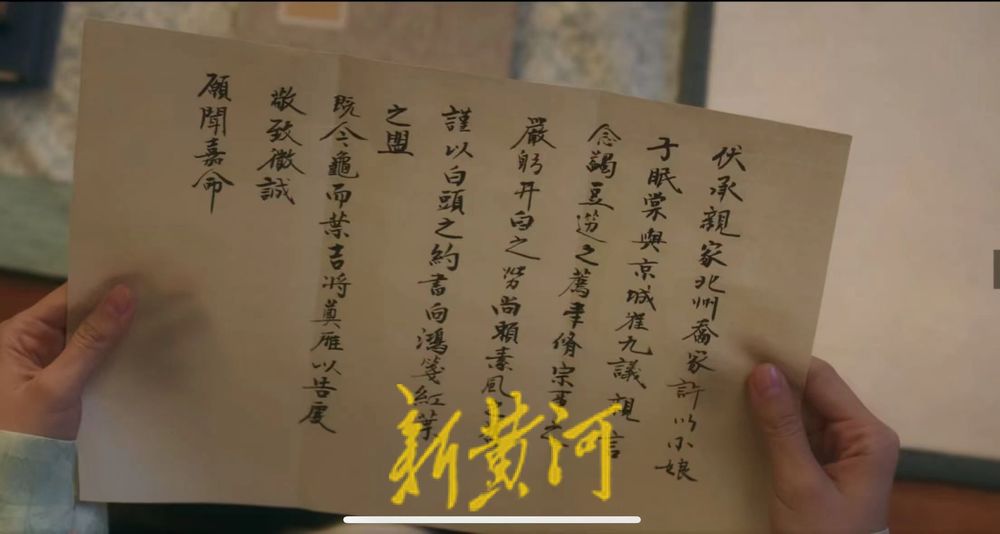 伏承親家北州喬家許以小娘
子眠棠與京城崔九議親言
念蠲豆籩之薦聿脩宗事之
嚴躬井臼之勞尚賴素風之
謹以白頭之約書向鴻箋紅葉
之盟
既令龜而葉吉將奠雁以告虔
敬致微誠
願聞嘉命
新黄河